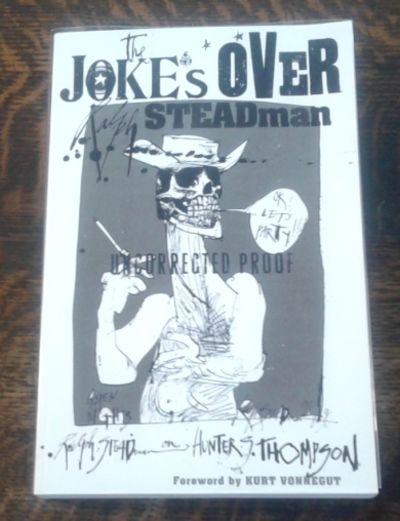 The
JOKE's OVER
Ralph STEADman
OK.
LET'S
PARTY!!
UNCORRECTED PROOF
Ralph STEADman on HUNTER S. THOMPSON
Foreword by KURT VONNEGUT